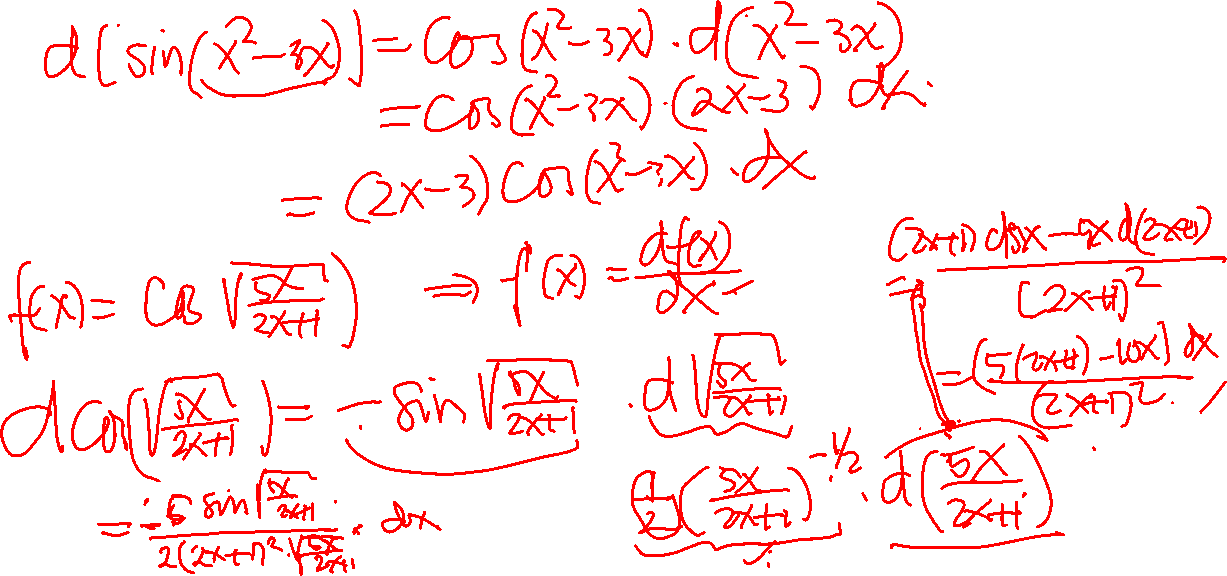 d[sin(x²-3x)] = cos(x²-3x)·d(x²-3x)
= cos(x²-3x)·(2x-3) dx.
= (2x-3) cos(x²-3x)·dx
f(x) = cos √(5x/(2x+1)) ) ⇒ f'(x) = df(x)/dx
d cos(√(5x/(2x+1))) = - sin √(5x/(2x+1)) · d√(5x/(2x+1))
(1/2)(5x/(2x+1))^(-1/2) · d(5x/(2x+1))
= ((2x+1) d5x - 5x d(2x+1))/(2x+1)²
= (5(2x+1) - 10x) dx/(2x+1)²
= -5 sin√(5x/(2x+1))/(2(2x+1)²·√(5x/(2x+1))) · dx